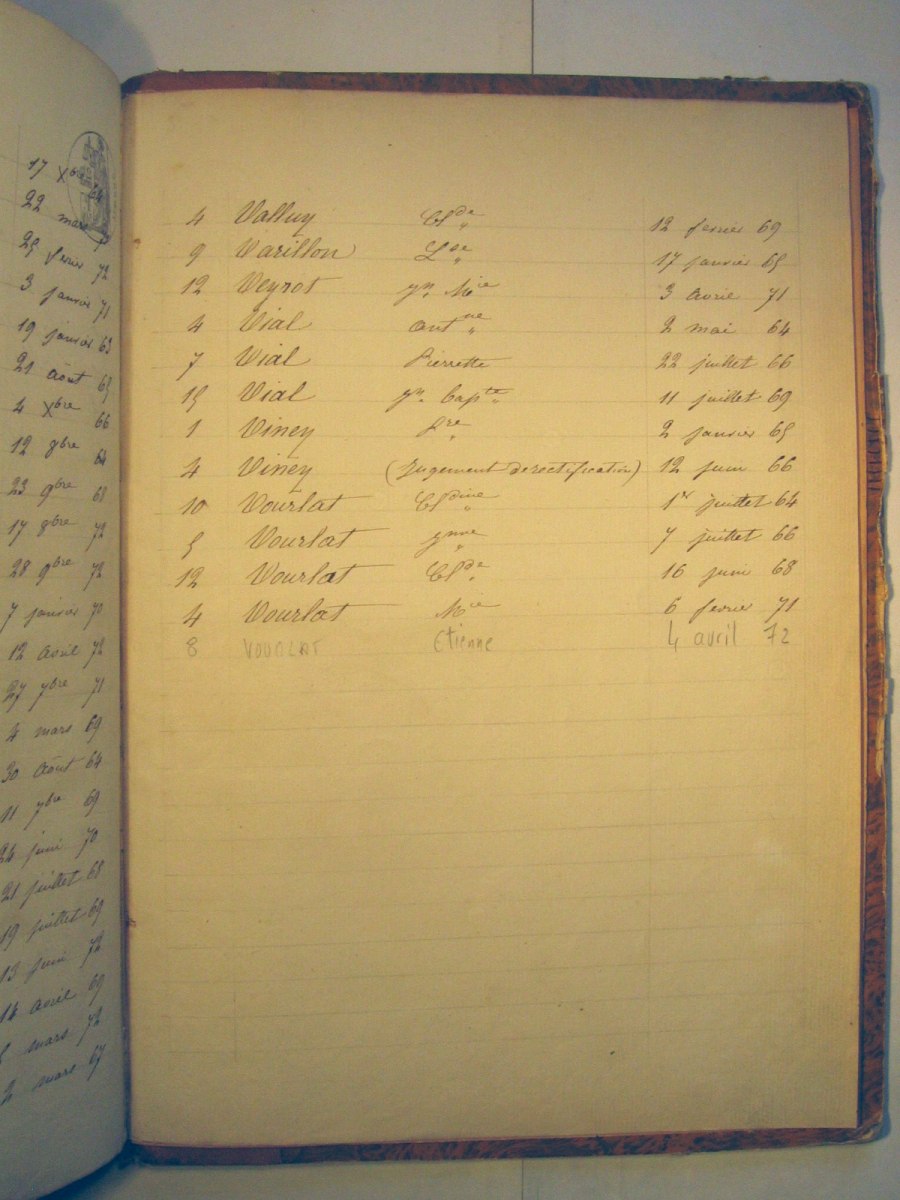 17 Xbre 64
22 mars
25 février 72
3 janvier 71
19 janvier 63
21 août 65
4 Xbre 66
12 8bre 64
23 9bre 68
17 8bre 72
28 9bre 72
7 janvier 70
12 avril 72
27 7bre 71
4 mars 69
30 août 64
11 7bre 69
24 juin 70
21 juillet 68
19 juillet 69
13 juin 72
14 avril 69
mars 72
2 mars 67
4 Valluy Clde 12 fevrier 69
9 Varillon Lse 17 janvier 65
12 Veyrot Jn Mie 3 avril 71
4 Vial antne 2 mai 64
7 Vial Pierrette 22 juillet 66
15 Vial Jn. bapte 11 juillet 69
1 Viney Pre 2 janvier 65
4 Viney (Jugement de rectification) 12 juin 66
10 Vourlat Cldine 1er juillet 64
5 Vourlat Jnne 7 juillet 66
12 Vourlat Clde 16 juin 68
4 Vourlat Mie 6 fevrier 71
8 VOURLAT Etienne 4 avril 72